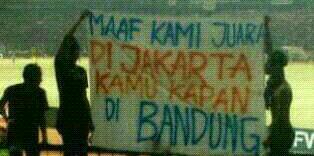 MAAF KAMI JUARA
DI JAKARTA
KAMU KAPAN
DI BANDUNG